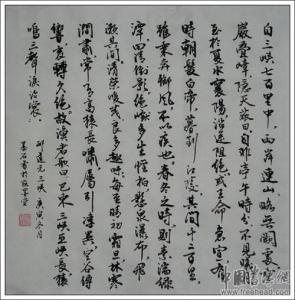 自三峽七百里中兩岸連山略無闕處重
巖疊嶂隱天蔽日自非亭午時分不見曦月
至於夏水襄陵沿溯阻絕或王命急宣有
時朝發白帝暮到江陵其間千二百里
雖乘奔御風不以疾也春冬之時則素湍綠
潭回清倒影絕巘多生怪柏懸泉瀑布飛
漱其間清榮峻茂良多趣味每至晴初霜旦林寒
澗肅常有高猿長嘯屬引淒異空谷傳
響哀轉久絕故漁者歌曰巴東三峽巫峽長猿
鳴三聲淚沾裳 酈道元三峽 庚寅冬月
www.freehead.com